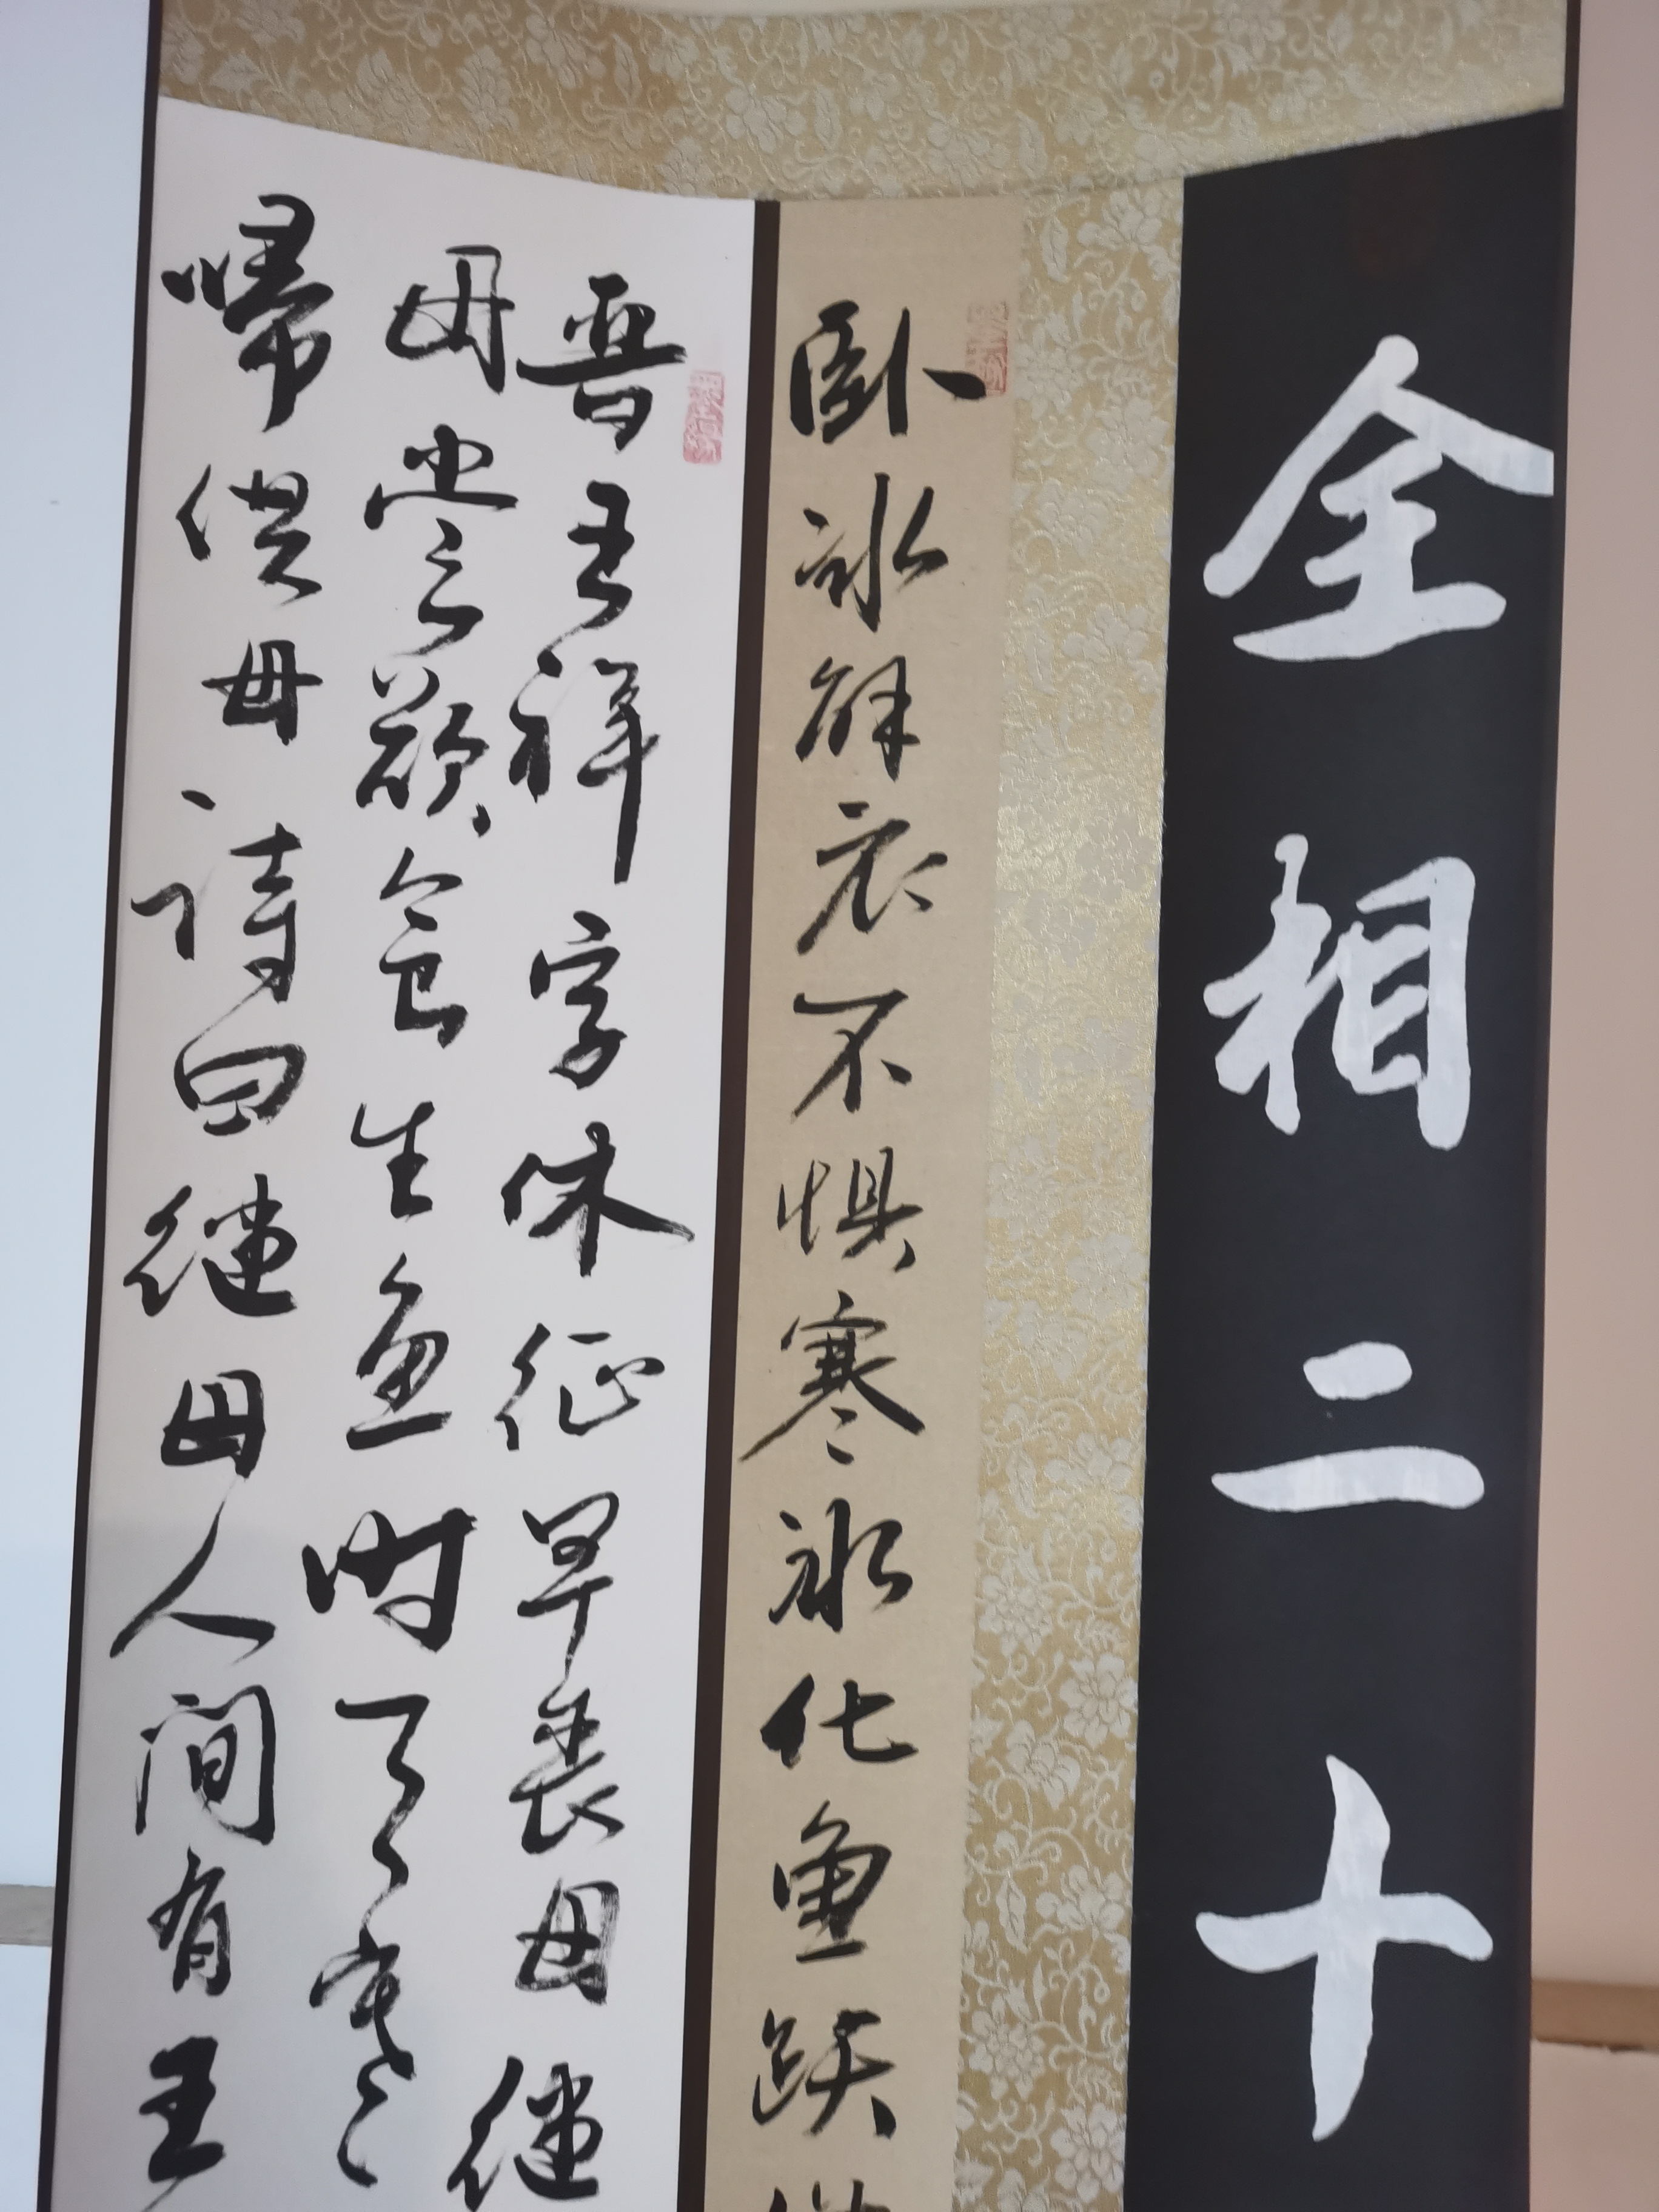 全相二十
卧冰解衣不惧寒冰化鱼跃供
晋王祥字休征早丧母继
母尝欲食生鱼时天寒
归供母诗曰继母人间有王